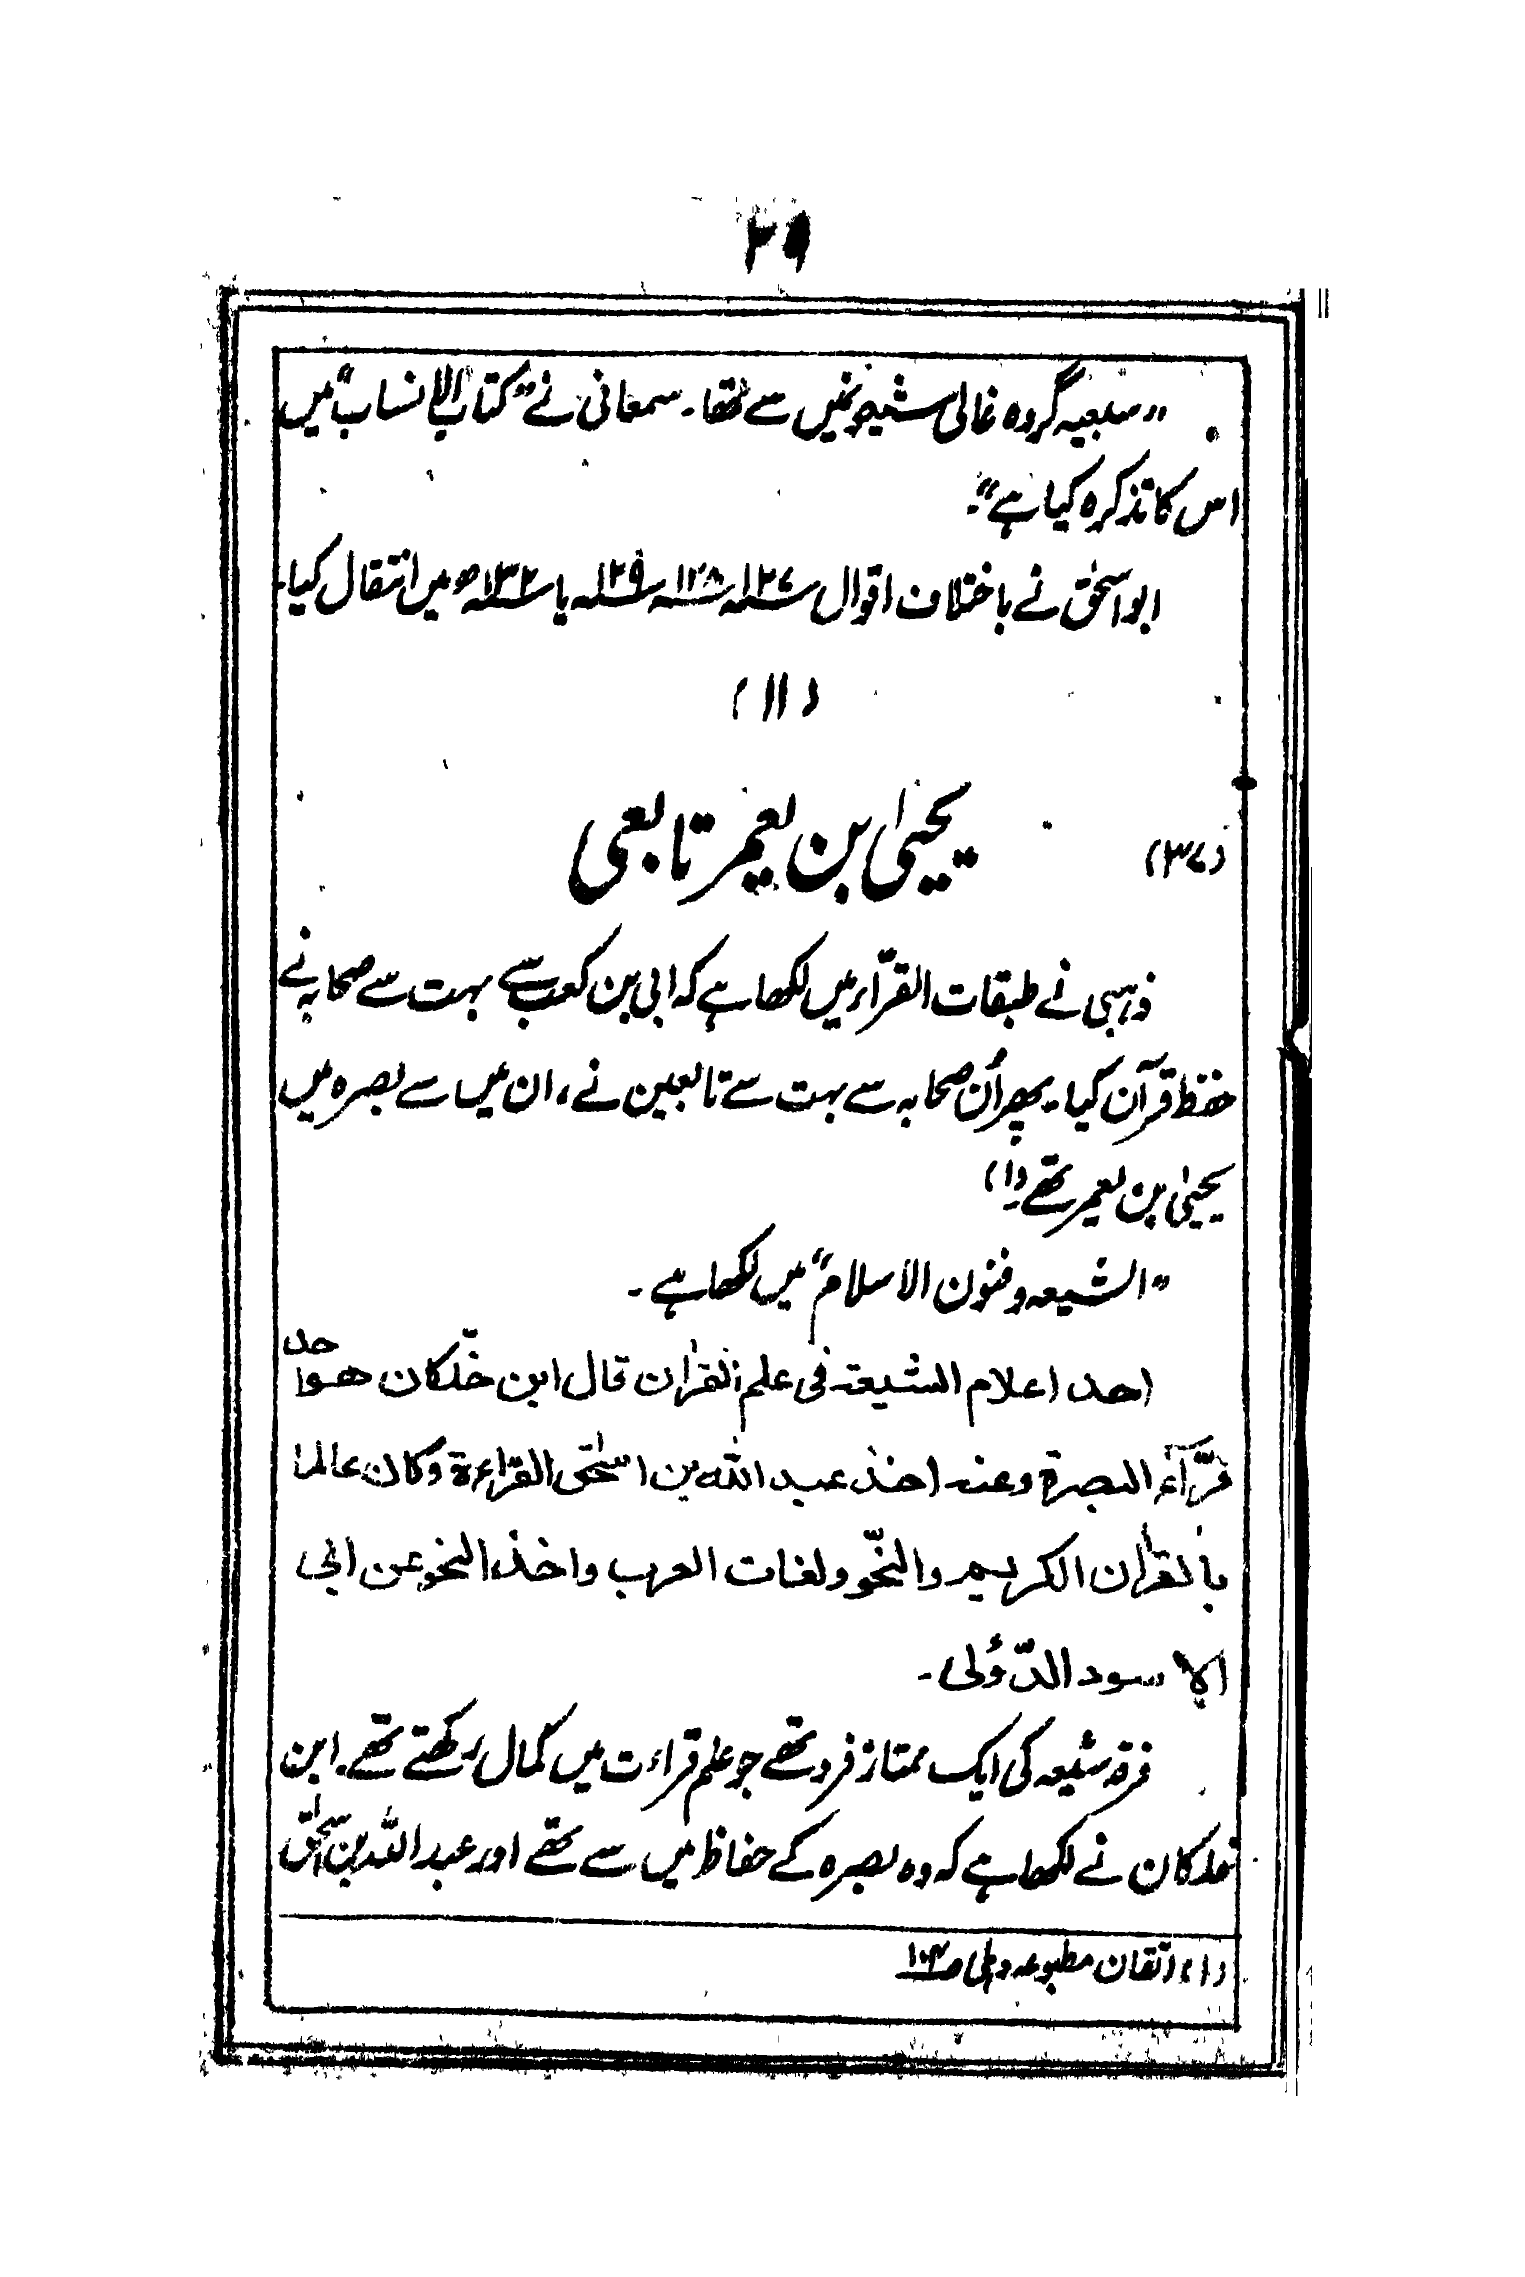 ۲۹
”سبعیہ گروہ غالی شیعونمیں سے تھا۔ سمعانی نے ”کتاب الانساب“ میں
اس کا تذکرہ کیا ہے“۔
ابواسحٰق نے باختلاف اقوال ۱۲۷ ؁ ۱۲۸ ؁ ۱۲۹ ؁ یا ۱۳۲ ؁ھ میں انتقال کیا۔
(۱۱)
(۳۷) یحییٰ ابن یعمر تابعی
ذہبی نے طبقات القرّاء میں لکھا ہے کہ ابی بن کعب سے بہت سے صحابہ نے
حفظ قرآن کیا۔ پھر اُن صحابہ سے بہت سے تابعین نے، ان میں سے بصرہ میں
یحییٰ بن یعمر تھے۔(۱)
”الشیعہ و فنون الاسلام“ میں لکھا ہے۔
احد اعلام الشیعۃ فی علم القرٰان قال ابن خلّکان ھو احد
قرّآء البصرۃ وعنہ اخذ عبد اللہ بن اسحٰق القراءۃ وکان عالما
بالقرٰان الکریم والنّحو ولغات العرب واخذ النحو عن ابی
الاسود الدّؤلی۔
فرقہ شیعہ کی ایک ممتاز فرد تھے جو علم قراءت میں کمال رکھتے تھے۔ ابن
خلدکان نے لکھا ہے کہ وہ بصرہ کے حفاظ میں سے تھے اور عبد اللہ بن اسحٰق
(۱) اتقان مطبوعہ دہلی ص۱۰۴